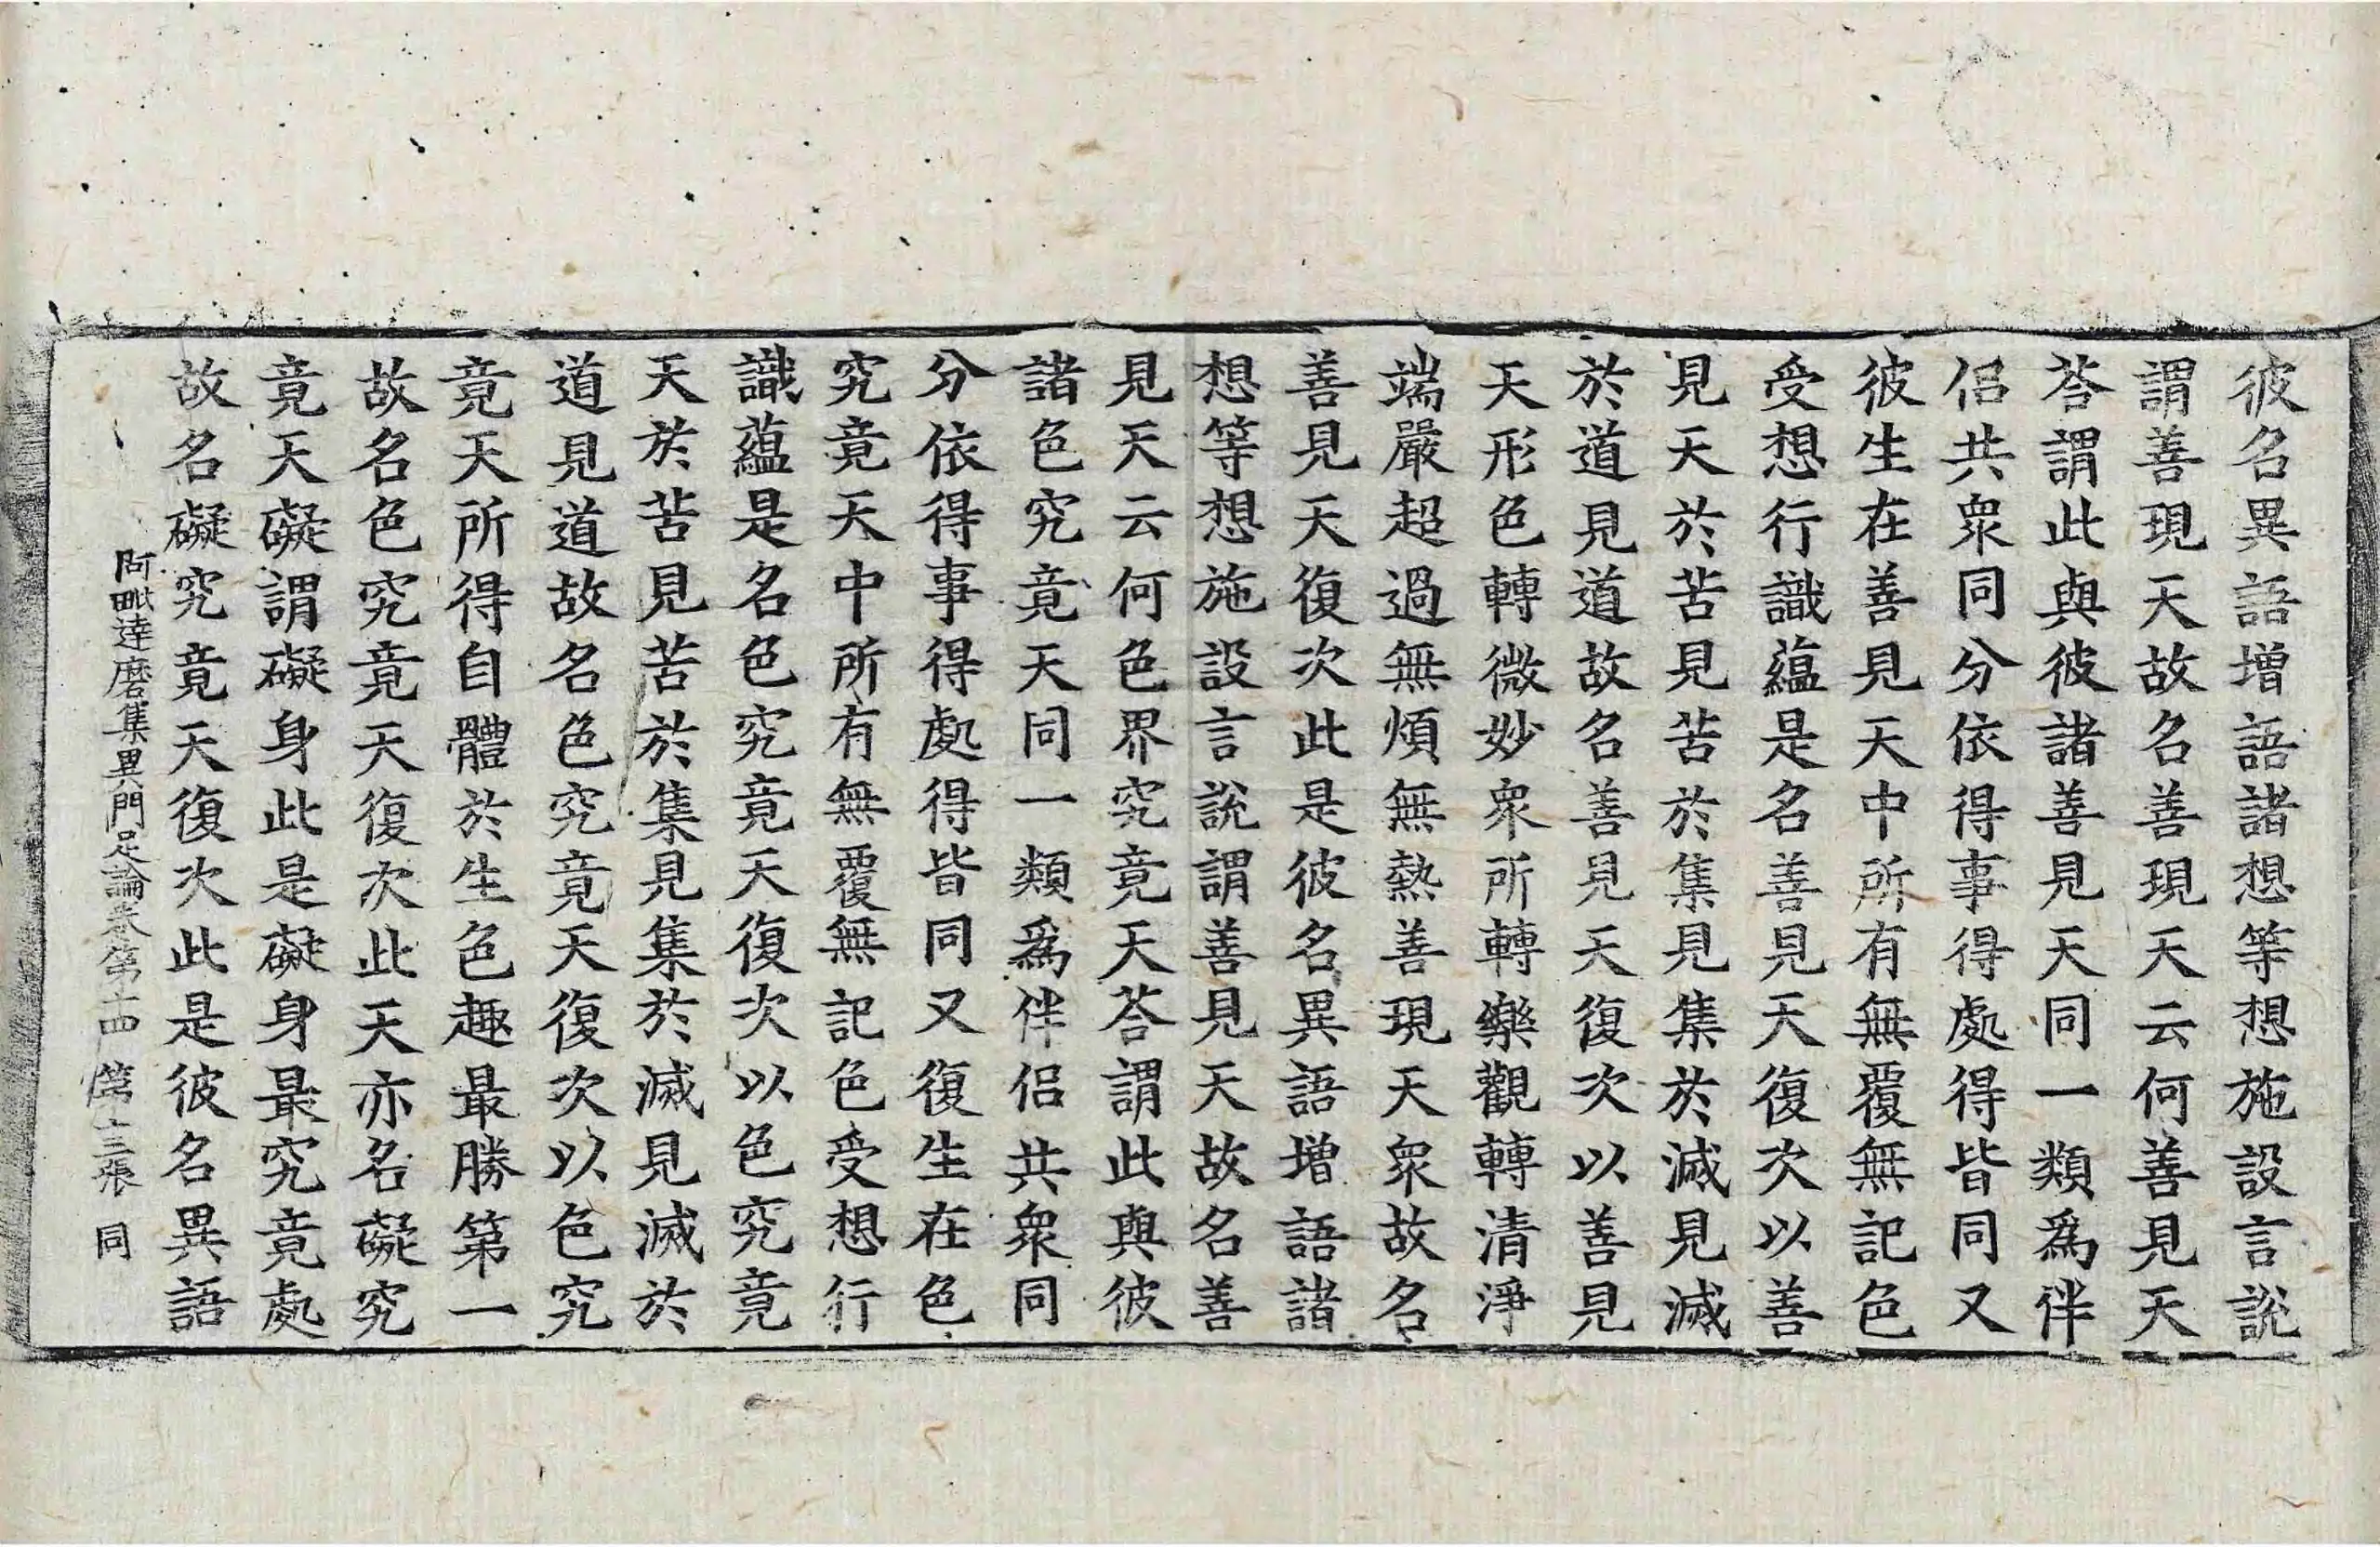 彼名異語增語諸想等想施設言說
謂善現天故名善現天云何善見天
荅謂此與彼諸善見天同一類爲伴
侣共衆同分依得事得處得皆同又
彼生在善見天中所有無覆無記色
受想行識蘊是名善見天復次以善
見天於苦見苦於集見集於滅見滅
於道見道故名善見天復次以善見
天形色轉微妙衆所轉樂觀轉清淨
端嚴超過無煩無熱善現天衆故名
善見天復次此是彼名異語增語諸
想等想施設言說謂善見天故名善
見天云何色界究竟天荅謂此與彼
諸色究竟天同一類爲伴侣共衆同
分依得事得處得皆同又復生在色
究竟天中所有無覆無記色受想行
識蘊是名色究竟天復次以色究竟
天於苦見苦於集見集於滅見滅於
道見道故名色究竟天復次以色究
竟天所得自體於生色趣最勝第一
故名色究竟天復次此天亦名礙究
竟天礙謂礙身此是礙身最究竟處
故名礙究竟天復次此是彼名異語
阿毗達磨集異門足論卷第十四 第十三張 同